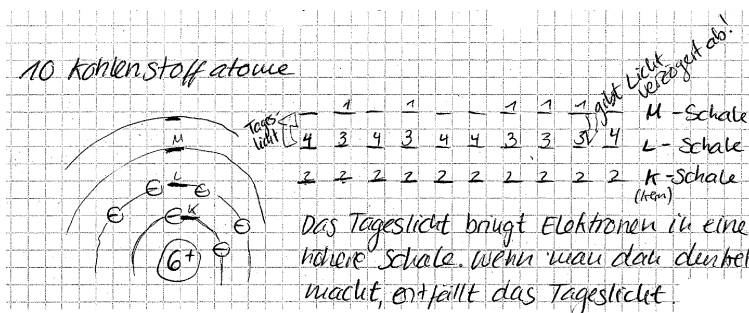 10 Kohlenstoffatome
gibt Licht
verzögert ab!
Tages-
licht
1 1 1 1 1 M - Schale
4 3 4 3 4 4 3 3 3 4 L - Schale
2 2 2 2 2 2 2 2 2 2 K - Schale
(kern)
M
L
K
6+
Das Tageslicht bringt Elektronen in eine
höhere Schale. Wenn man dan dunkel
macht, entfällt das Tageslicht.